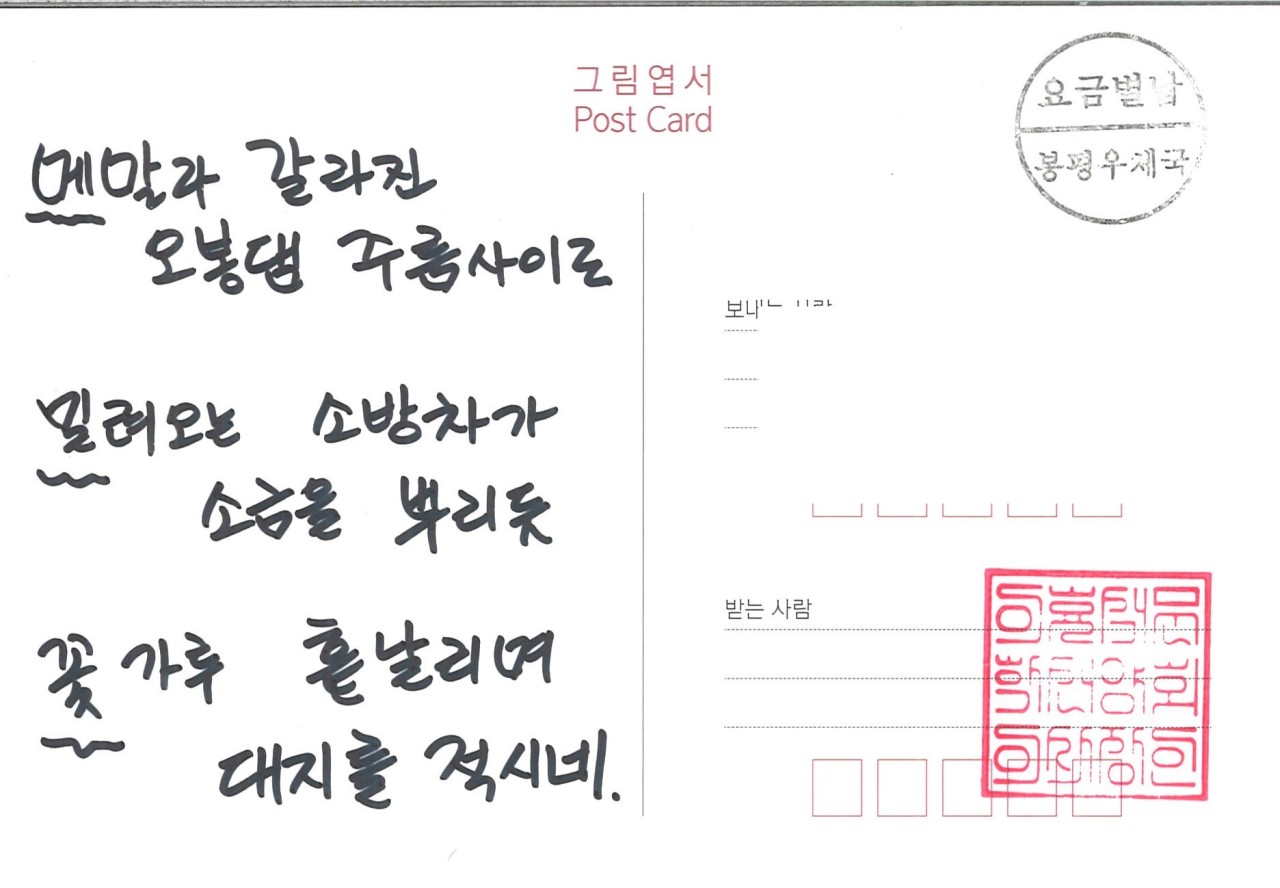 그림엽서
Post Card
요금별납
봉평우체국
메말라 갈라진
오봉댐 주름사이로
밀려오는 소방차가
소금을 뿌리듯
꽃가루 흩날리며
대지를 적시네.
보내는 사람
받는 사람